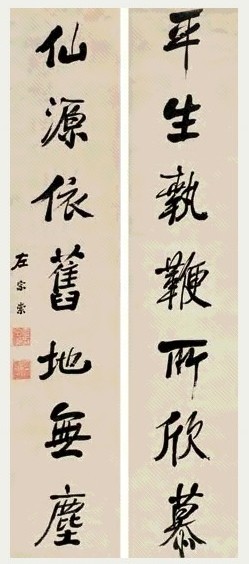 平生執鞭所欣慕
仙源依舊地無塵
左宗棠